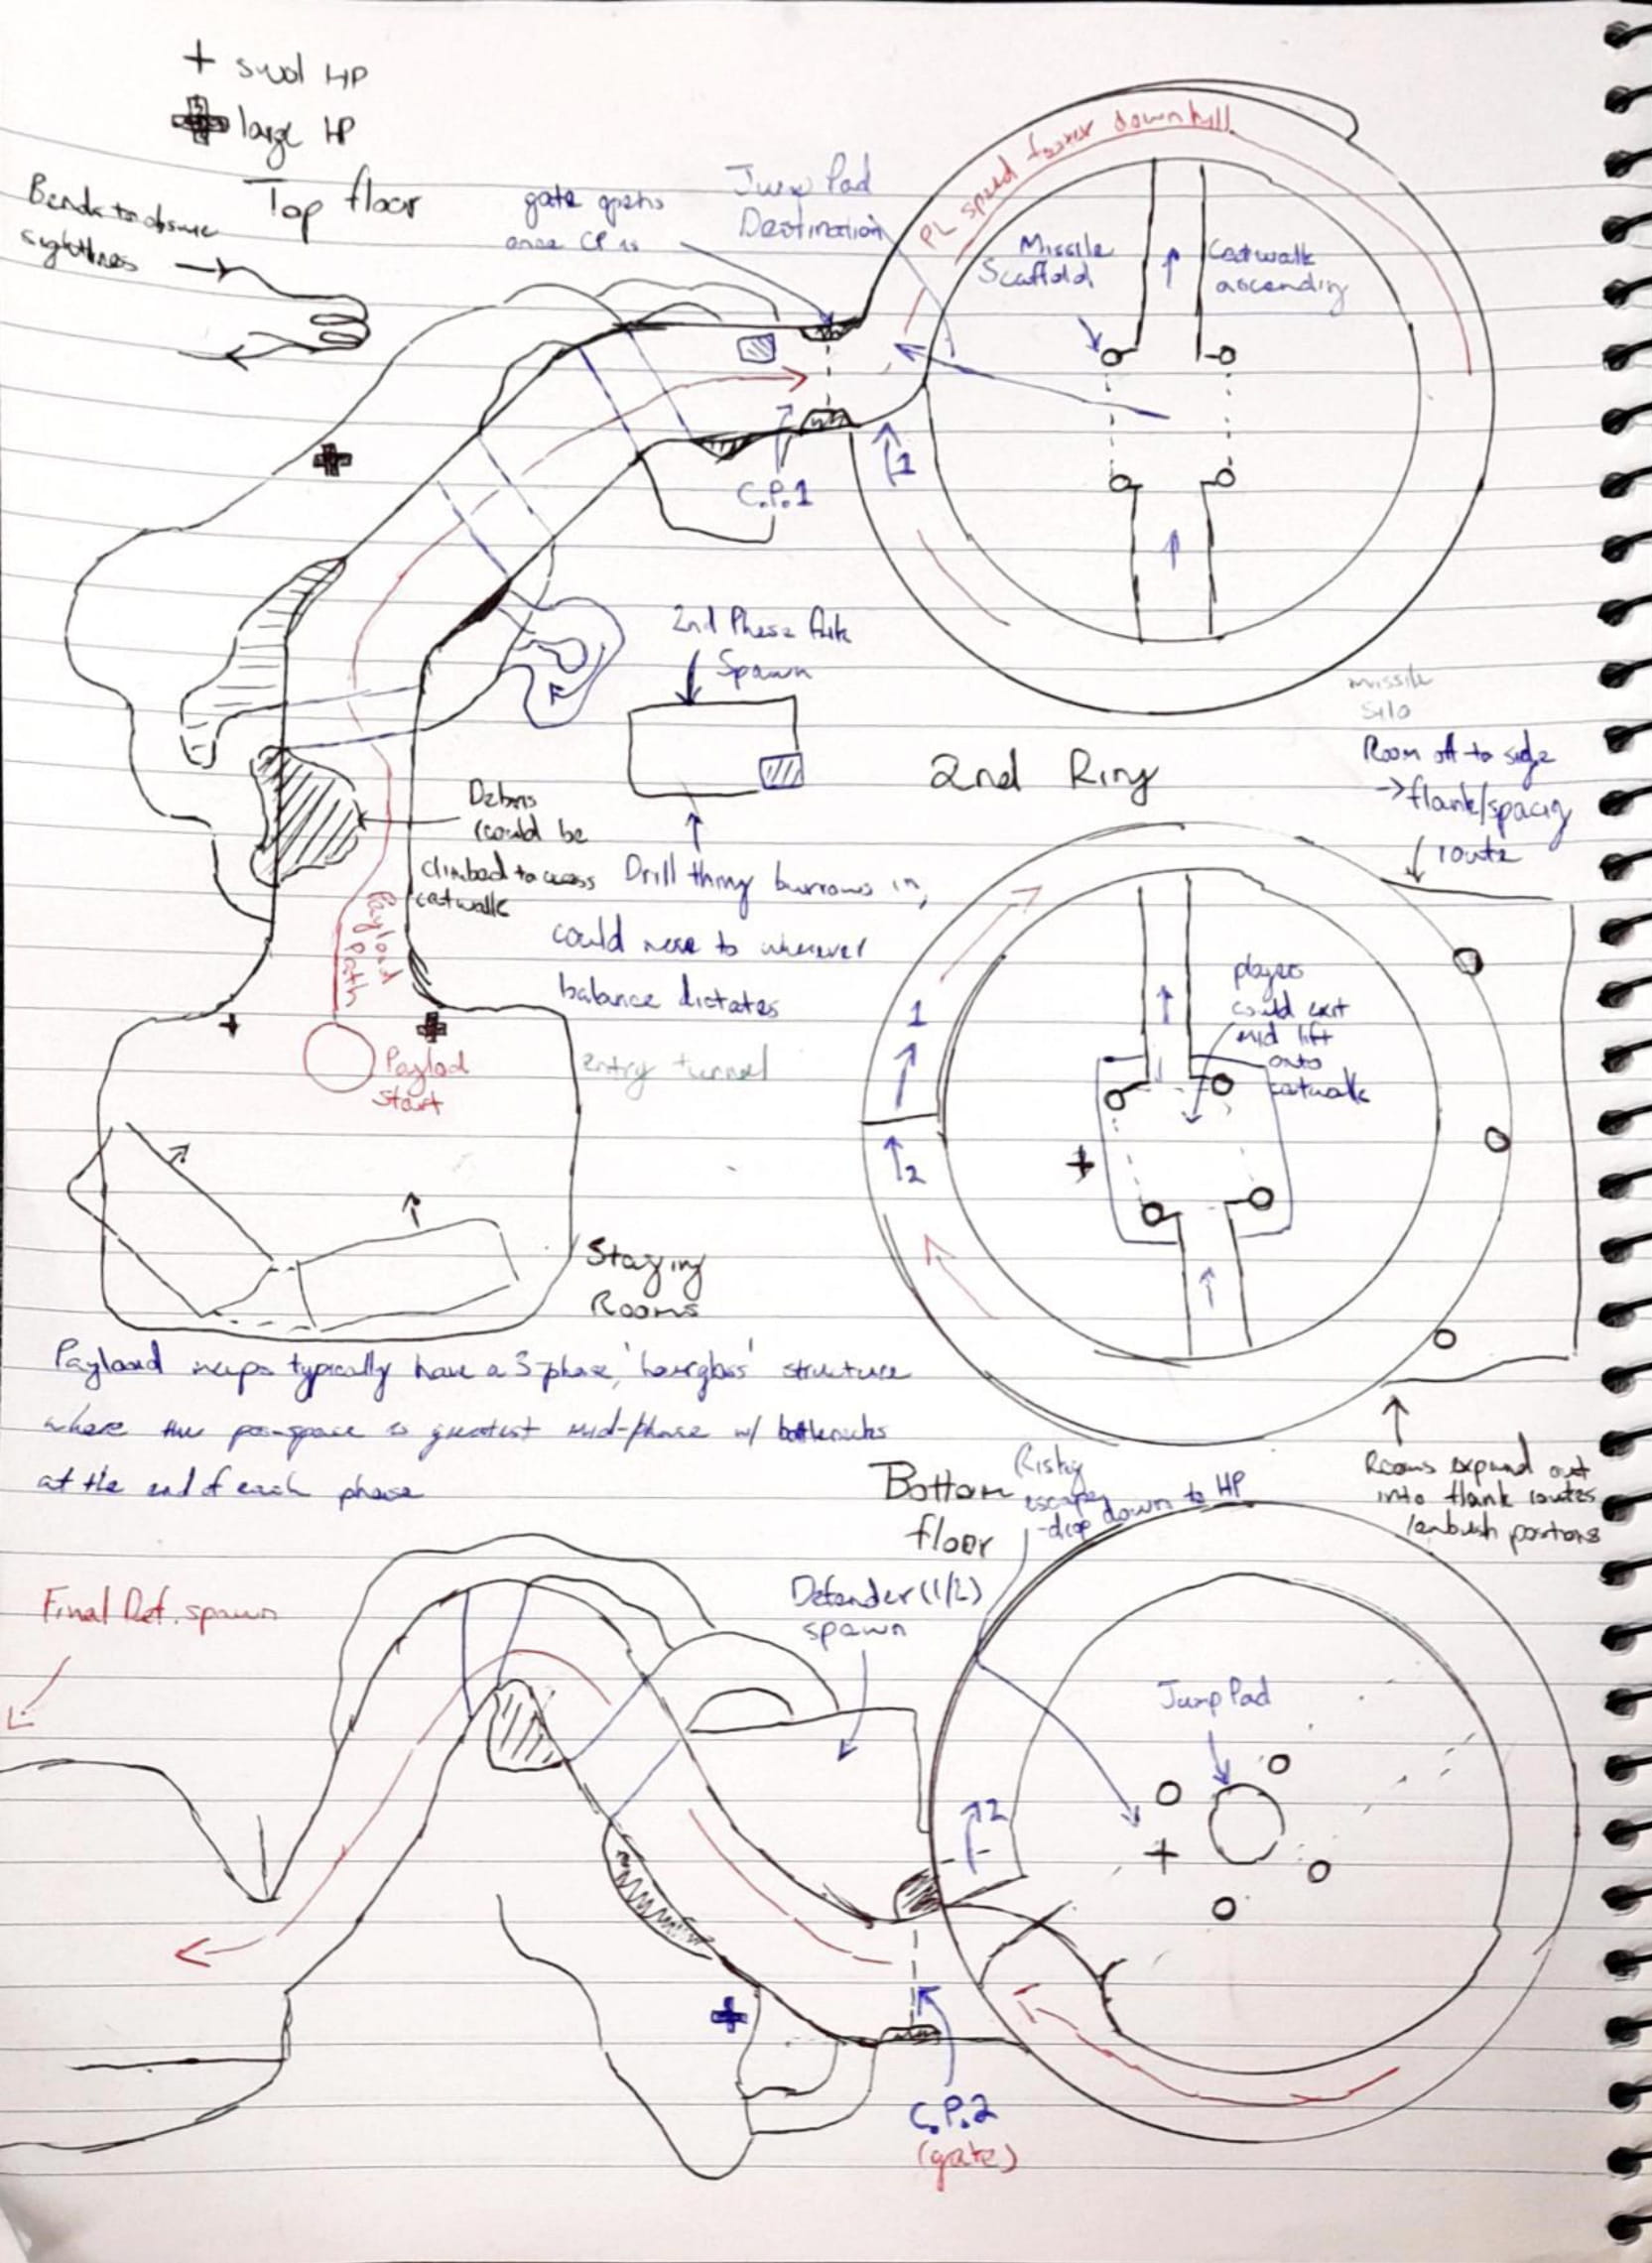 + smol HP
large HP
Top floor
Bends to obscure
sightlines
gate opens
once CP is
Jump Pad
Destination
PL speed faster downhill
Missile
Scaffold
Catwalk
ascending
C.P.1
1
2nd Phase Atk
Spawn
missile
silo
Room off to side
→ flank/spacing
route
2nd Ring
Debris
(could be
climbed to access
catwalk
Drill thing burrows in,
could move to wherever
balance dictates
Payload
Path
players
could exit
mid lift
onto
catwalk
1
2
entry tunnel
Payload
start
Staging
Rooms
Payload maps typically have a 3-phase, 'hourglass' structure
where the space is greatest mid-phase w/ bottlenecks
at the end of each phase
Rooms expand out
into flank routes
/ambush positions
Bottom
floor
Risky
escape
-drop down to HP
Final Def. spawn
Defender (1/2)
spawn
Jump Pad
2
C.P.2
(gate)